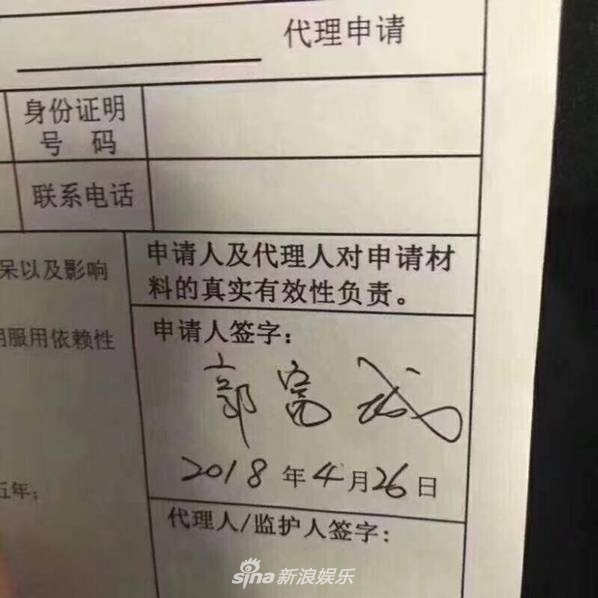 代理申请
身份证明
号 码
联系电话
呆以及影响
申请人及代理人对申请材
料的真实有效性负责。
服用依赖性
申请人签字：
郭富城
2018年4月26日
五年；
代理人/监护人签字：
sina新浪娱乐